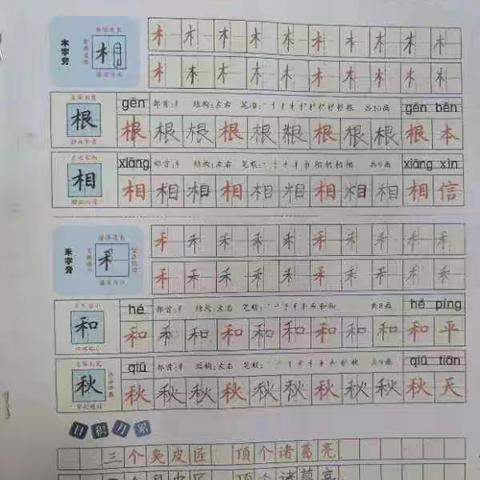 木字旁
木 木 木 木 木 木 木 木 木 木
木 木 木 木 木 木 木 木 木 木
gēn 部首:木 结构:左右 笔顺: 共10画 gēn běn
根 根 根 根 根 根 根 根 根 根 本
xiāng 部首:木 结构:左右 笔顺: 共9画 xiāng xìn
相 相 相 相 相 相 相 相 相 相 信
禾字旁
禾 禾 禾 禾 禾 禾 禾 禾 禾 禾
禾 禾 禾 禾 禾 禾 禾 禾 禾 禾
hé 部首:禾 结构:左右 笔顺: 共8画 hé píng
和 和 和 和 和 和 和 和 和 和 平
qiū 部首:禾 结构:左右 笔顺: 共9画 qiū tiān
秋 秋 秋 秋 秋 秋 秋 秋 秋 秋 天
日积月累
三个臭皮匠 顶个诸葛亮
三个臭皮匠 顶个诸葛亮